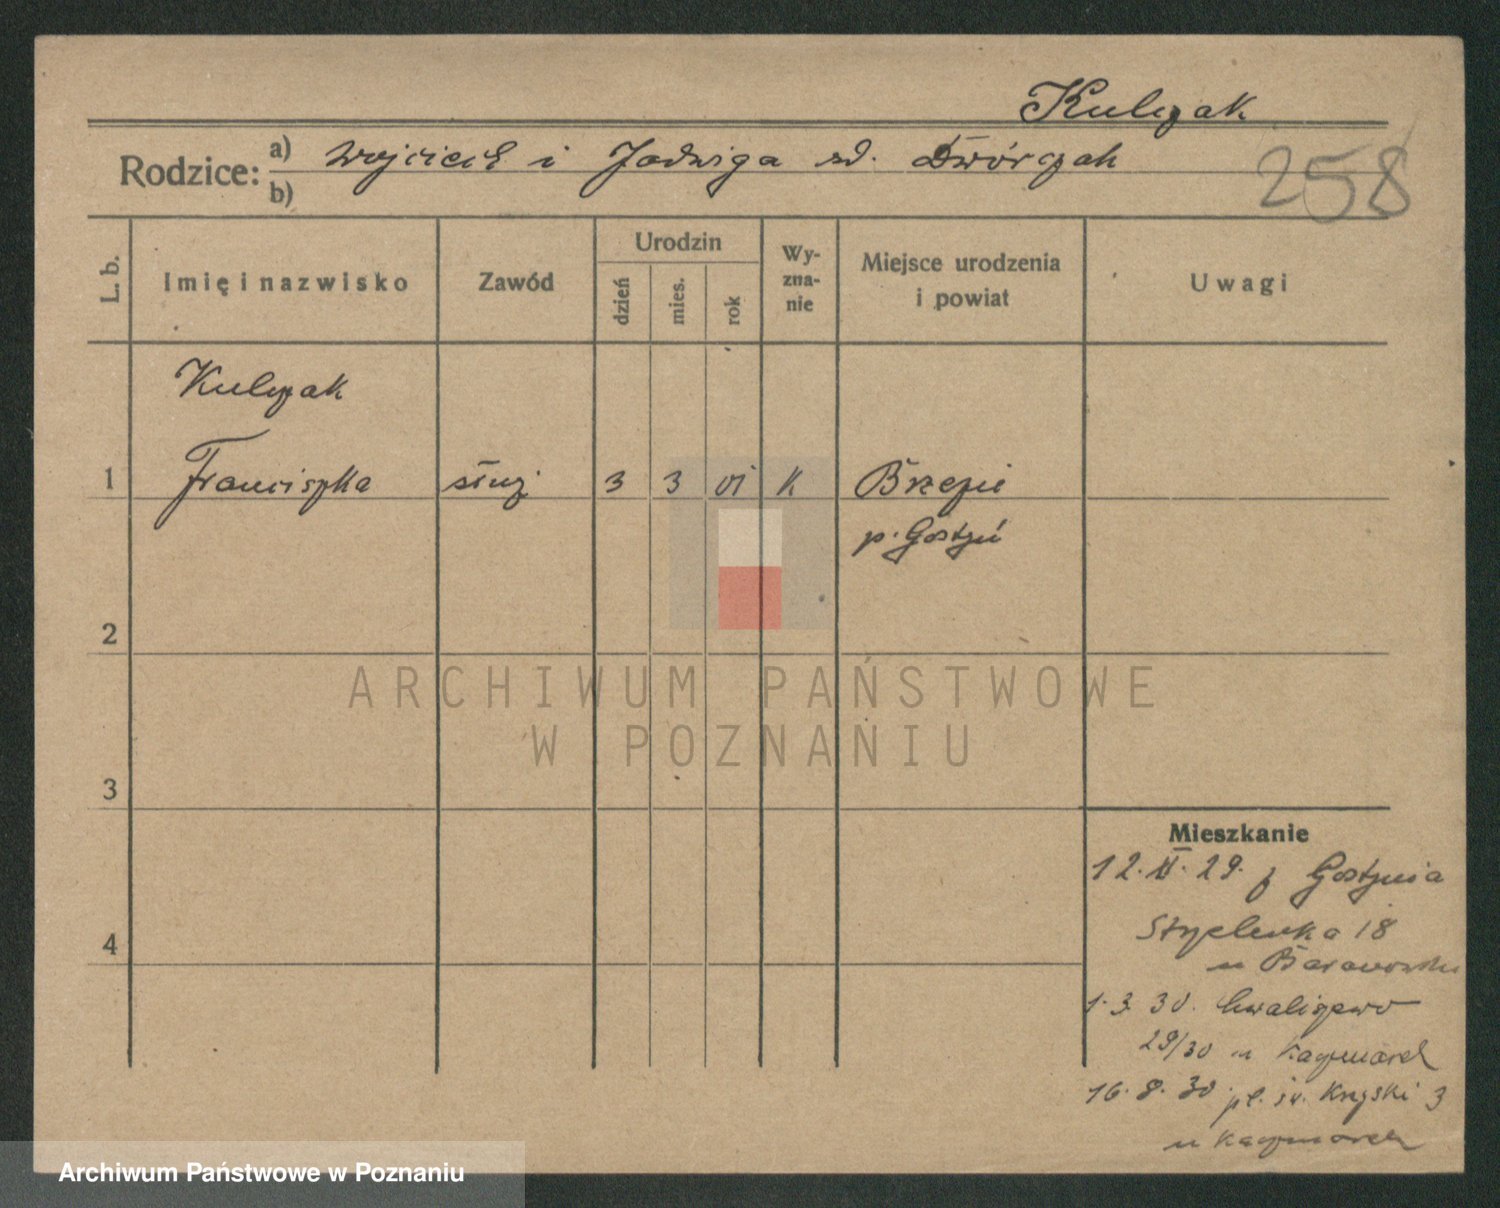 Kulczak
Rodzice: a) Wojciech i Jadwiga zd. Dwórczak
b)
258
L. b.
Imię i nazwisko
Zawód
Urodzin
dzień
mies.
rok
Wy-
zna-
nie
Miejsce urodzenia
i powiat
Uwagi
Kulczak
1 Franciszka służ 3 3 01 K Brzezie
p. Gostyń
2
ARCHIWUM PAŃSTWOWE
W POZNANIU
3
Mieszkanie
12.XI.29. z Gostynia
4
Strzelecka 18
u Baranowski
1.3.30. Chwaliszewo
29/30 u Kaczmarek
16.8.30 pl. św. Krzyski 3
u Kaczmarek
Archiwum Państwowe w Poznaniu